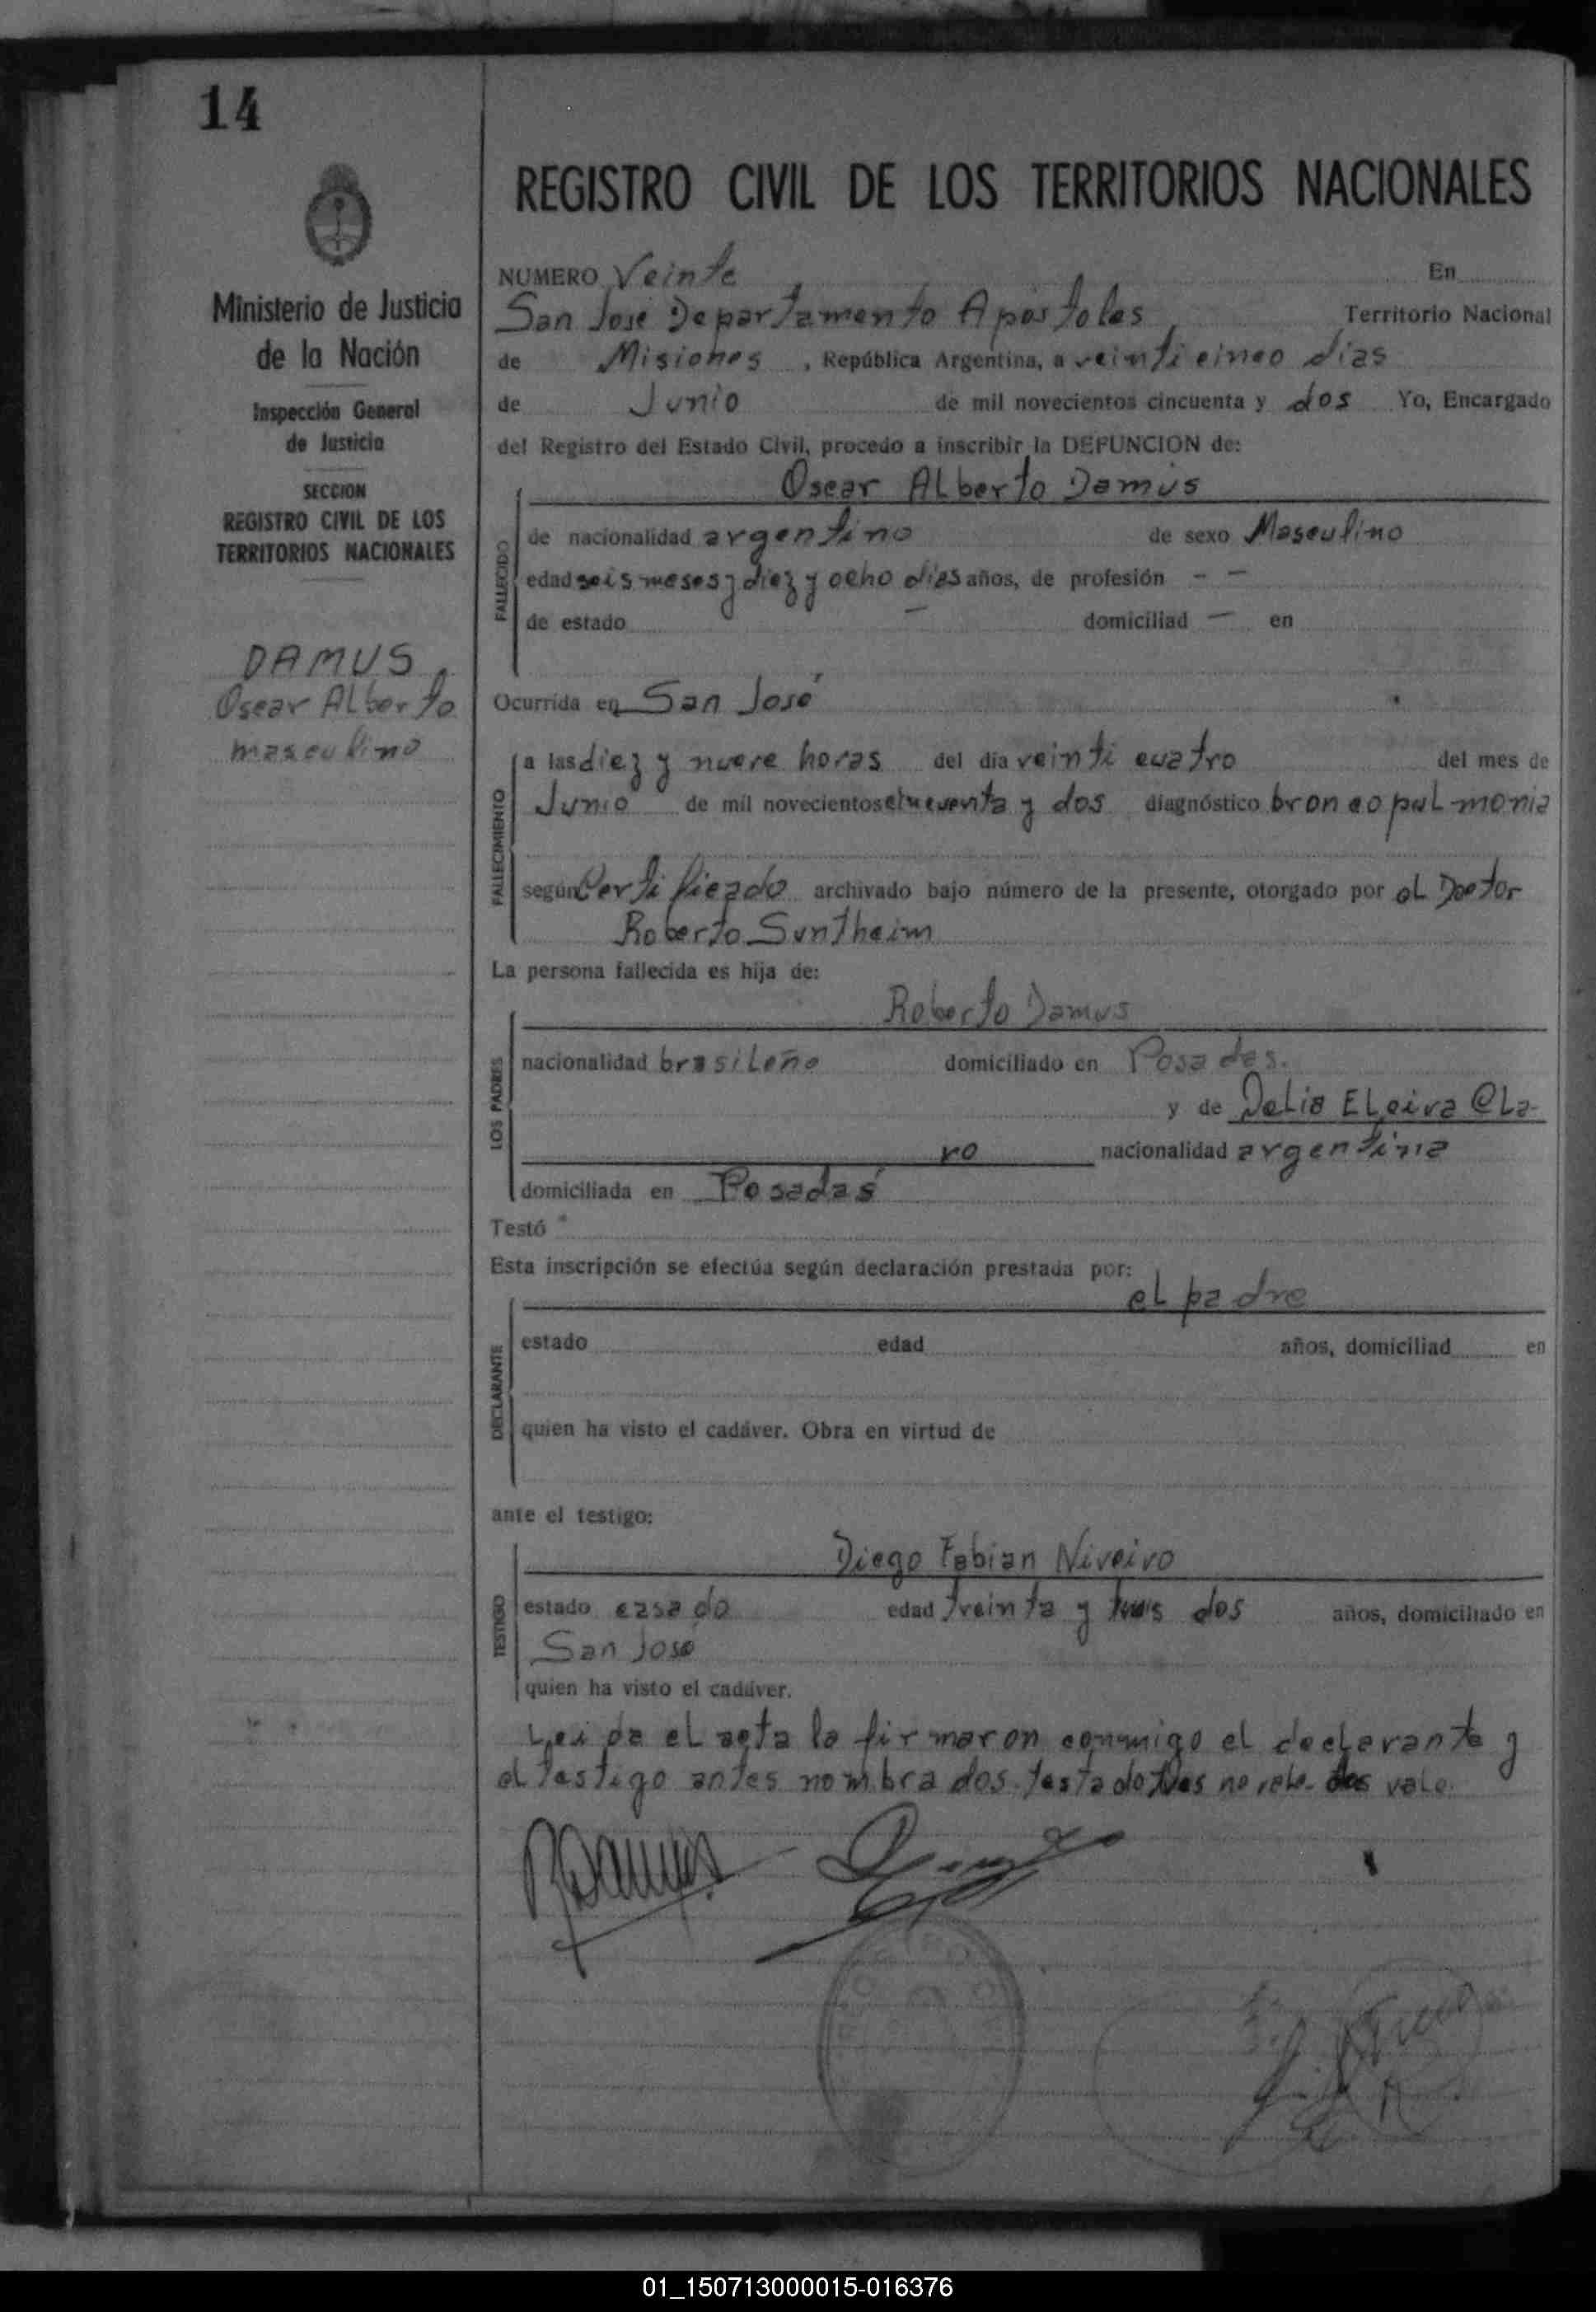 14
REGISTRO CIVIL DE LOS TERRITORIOS NACIONALES
Ministerio de Justicia
de la Nación
Inspección General
de Justicia
SECCION
REGISTRO CIVIL DE LOS
TERRITORIOS NACIONALES
DAMUS
Oscar Alberto
masculino
NUMERO Veinte En
San José Departamento Apóstoles Territorio Nacional
de Misiones, República Argentina, a veinticinco días
de Junio de mil novecientos cincuenta y dos Yo, Encargado
del Registro del Estado Civil, procedo a inscribir la DEFUNCION de:
Oscar Alberto Damus
FALLECIDO
de nacionalidad argentino de sexo Masculino
edad seis meses y diez y ocho días años, de profesión - -
de estado — domiciliad — en
Ocurrida en San José
FALLECIMIENTO
a las diez y nueve horas del día veinti cuatro del mes de
Junio de mil novecientos cincuenta y dos diagnóstico bronco pulmonia
según Certificado archivado bajo número de la presente, otorgado por el Doctor
Roberto Suntheim
La persona fallecida es hija de:
LOS PADRES
Roberto Damus
nacionalidad brasileño domiciliado en Posadas.
y de Delia Elcira Cla-
ro nacionalidad argentina
domiciliada en Posadas
Testó
Esta inscripción se efectúa según declaración prestada por:
DECLARANTE
el padre
estado edad años, domiciliad en
quien ha visto el cadáver. Obra en virtud de
ante el testigo:
TESTIGO
Diego Fabian Niveiro
estado casado edad treinta y dos años, domiciliado en
San José
quien ha visto el cadáver.
Leida el acta la firmaron conmigo el declarante y
el testigo antes nombrados. testado no vale. dos vale.
R Damus
01_150713000015-016376